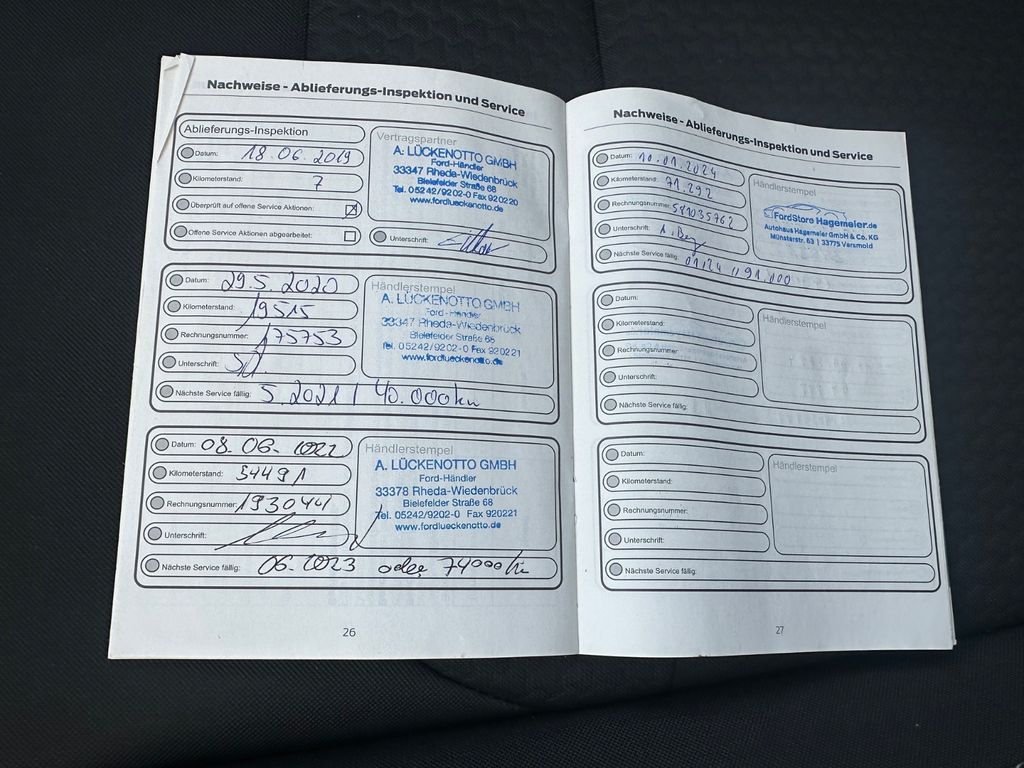 Nachweise - Ablieferungs-Inspektion und Service
Ablieferungs-Inspektion
Datum: 18.06.2019
Kilometerstand: 7
Überprüft auf offene Service Aktionen:
Offene Service Aktionen abgearbeitet:
Vertragspartner
A. LÜCKENOTTO GMBH
Ford-Händler
33347 Rheda-Wiedenbrück
Bielefelder Straße 68
Tel. 05242/9202-0 Fax 920220
www.fordlueckenotto.de
Unterschrift:
Datum: 29.5.2020
Kilometerstand: 19515
Rechnungsnummer: 175753
Unterschrift:
Nächste Service fällig: 5.2021 / 40.000km
Händlerstempel
A. LÜCKENOTTO GMBH
Ford-Händler
33347 Rheda-Wiedenbrück
Bielefelder Straße 68
Tel. 05242/9202-0 Fax 920221
www.fordlueckenotto.de
Datum: 08.06.2022
Kilometerstand: 54491
Rechnungsnummer: 193044
Unterschrift:
Nächste Service fällig: 06.2023 oder 74000km
Händlerstempel
A. LÜCKENOTTO GMBH
Ford-Händler
33378 Rheda-Wiedenbrück
Bielefelder Straße 68
Tel. 05242/9202-0 Fax 920221
www.fordlueckenotto.de
26
Nachweise - Ablieferungs-Inspektion und Service
Datum: 10.01.2024
Kilometerstand: 71.292
Rechnungsnummer: 591035762
Unterschrift:
Nächste Service fällig: 01/24 // 91.000
Händlerstempel
FordStore Hagemeier.de
Autohaus Hagemeier GmbH & Co. KG
Münsterstr. 63 | 33775 Versmold
Datum:
Kilometerstand:
Rechnungsnummer:
Unterschrift:
Nächste Service fällig:
Händlerstempel
Datum:
Kilometerstand:
Rechnungsnummer:
Unterschrift:
Nächste Service fällig:
Händlerstempel
27